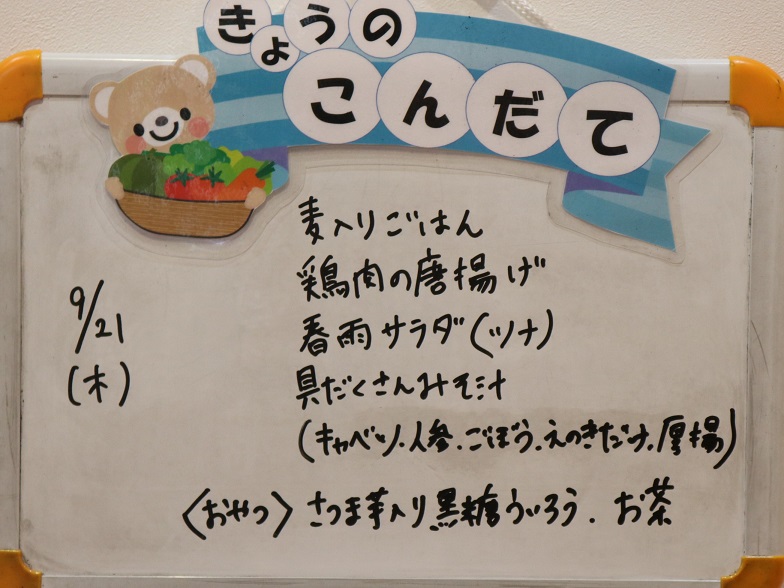 きょうの
こんだて
麦入りごはん
鶏肉の唐揚げ
9/21
春雨サラダ(ツナ)
(木)
具だくさんみそ汁
(キャベツ.人参.ごぼう.えのきだけ.厚揚)
〈おやつ〉さつま芋入り黒糖ういろう.お茶